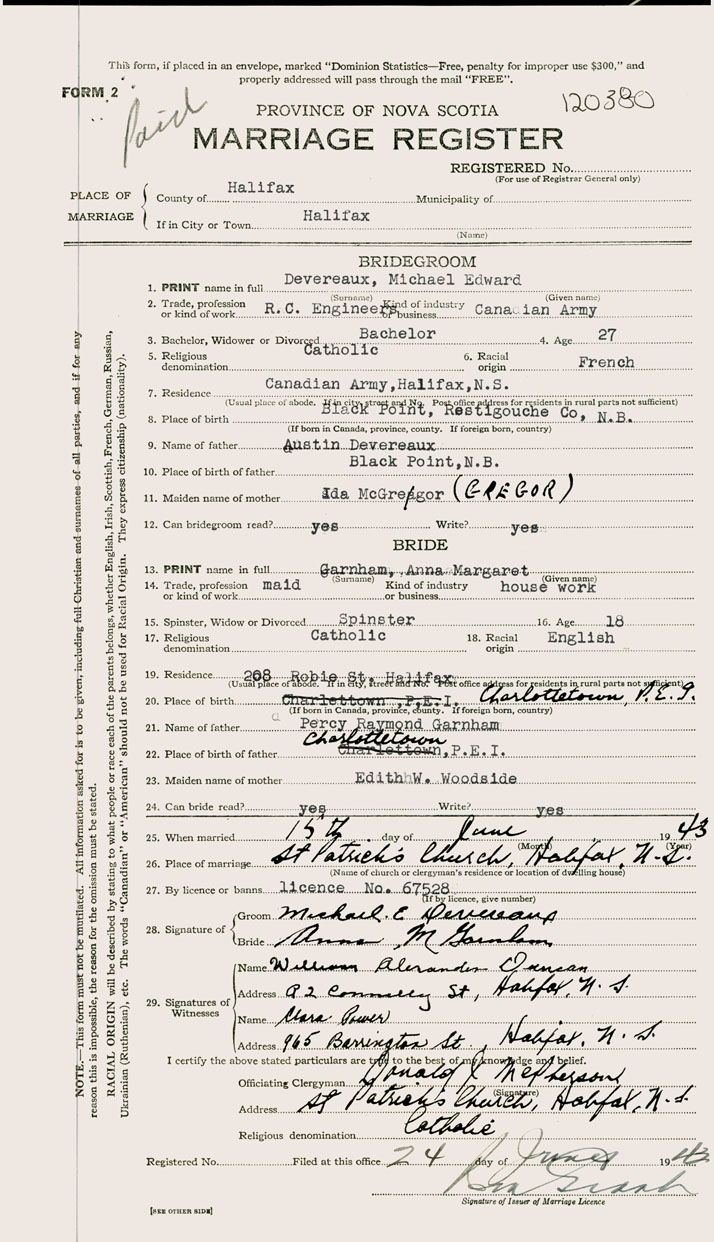 This form, if placed in an envelope, marked "Dominion Statistics—Free, penalty for improper use $300," and
properly addressed will pass through the mail "FREE".
FORM 2
Paid
120380
PROVINCE OF NOVA SCOTIA
MARRIAGE REGISTER
REGISTERED No.
(For use of Registrar General only)
PLACE OF MARRIAGE
County of Halifax Municipality of
If in City or Town Halifax
(Name)
BRIDEGROOM
1. PRINT name in full Devereaux, Michael Edward
(Surname) (Given name)
2. Trade, profession or kind of work R.C. Engineers Kind of industry or business Canadian Army
3. Bachelor, Widower or Divorced Bachelor 4. Age 27
5. Religious denomination Catholic 6. Racial origin French
7. Residence Canadian Army,Halifax,N.S.
(Usual place of abode. If in city, street and No. Post office address for residents in rural parts not sufficient)
8. Place of birth Black Point, Restigouche Co, N.B.
(If born in Canada, province, county. If foreign born, country)
9. Name of father Austin Devereaux
10. Place of birth of father Black Point,N.B.
11. Maiden name of mother Ida McGregor (GREGOR)
12. Can bridegroom read? yes Write? yes
BRIDE
13. PRINT name in full Garnham, Anna Margaret
(Surname) (Given name)
14. Trade, profession or kind of work maid Kind of industry or business house work
15. Spinster, Widow or Divorced Spinster 16. Age 18
17. Religious denomination Catholic 18. Racial origin English
19. Residence 208 Robie St. Halifax
(Usual place of abode. If in city, street and No. Post office address for residents in rural parts not sufficient)
20. Place of birth Charlettown ,P.E.I. Charlottetown, P.E.I.
(If born in Canada, province, county. If foreign born, country)
21. Name of father Percy Raymond Garnham
Charlottetown
22. Place of birth of father Charlettown,P.E.I.
23. Maiden name of mother Edith W. Woodside
24. Can bride read? yes Write? yes
25. When married 15th day of June 1943
(Month) (Year)
26. Place of marriage St Patrick's Church, Halifax, N.S.
(Name of church or clergyman's residence or location of dwelling house)
27. By licence or banns licence No. 67528
(If by licence, give number)
28. Signature of
Groom Michael. E Devereaux
Bride Anna M Garnham
29. Signatures of Witnesses
Name William Alexander Duncan
Address Connolly St, Halifax, N.S.
Name Clara Power
Address 965 Barrington St, Halifax, N.S.
I certify the above stated particulars are true to the best of my knowledge and belief.
Officiating Clergyman Donald McPherson
(Signature)
Address St Patrick's Church, Halifax, N.S.
Religious denomination Catholic
Registered No. Filed at this office 24 day of June 1943
Signature of Issuer of Marriage Licence
[SEE OTHER SIDE]
NOTE.—This form must not be mutilated. All information asked for is to be given, including full Christian and surnames of all parties, and if for any
reason this is impossible, the reason for the omission must be stated.
RACIAL ORIGIN will be described by stating to what people or race each of the parents belongs, whether English, Irish, Scottish, French, German, Russian,
Ukrainian (Ruthenian), etc. The words "Canadian" or "American" should not be used for Racial Origin. They express citizenship (nationality).